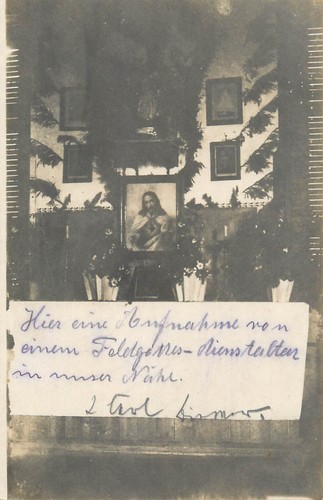 Hier eine Aufnahme von
einem Feldgottes-dienstaltar
in unser Nähe.